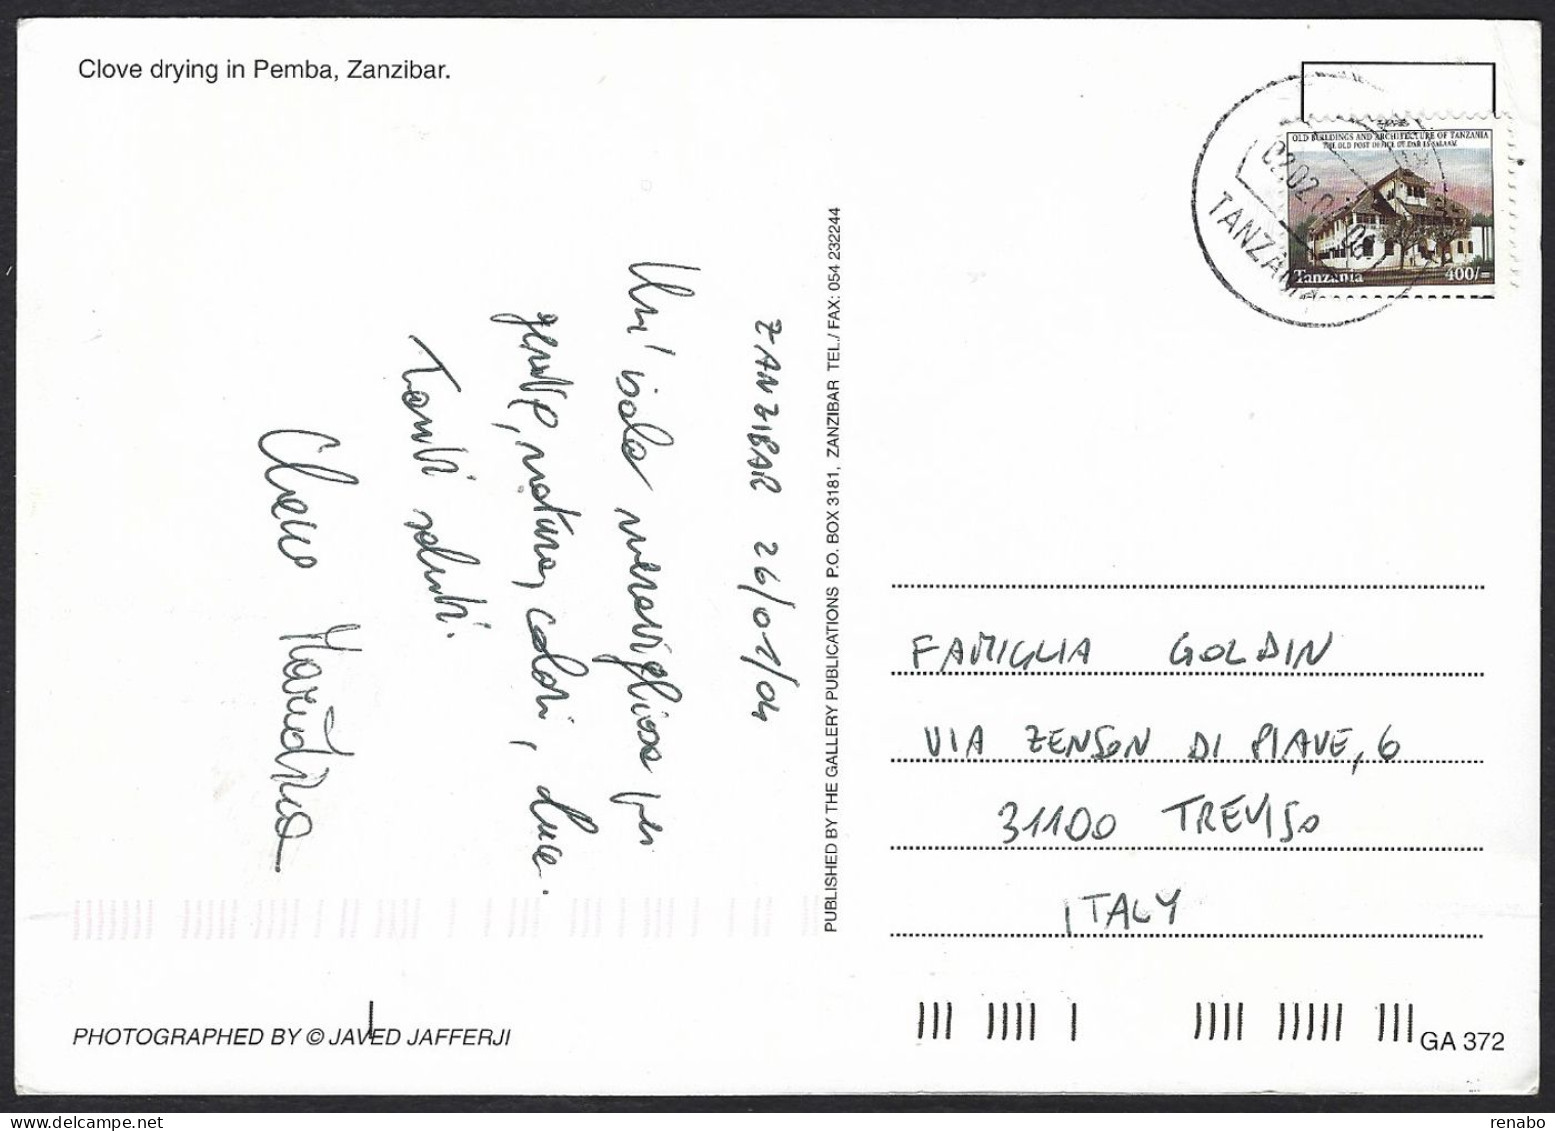 Clove drying in Pemba, Zanzibar.
OLD BUILDINGS AND ARCHITECTURE OF TANZANIA
THE OLD POST OFFICE OF DAR ES SALAAM
Tanzania 400/=
TANZANIA
ZANZIBAR 26/01/04
Un'isola meravigliosa per
gente, natura, colori, luce.
Tanti saluti.
PUBLISHED BY THE GALLERY PUBLICATIONS P.O. BOX 3181, ZANZIBAR TEL./ FAX: 054 232244
FAMIGLIA GOLDIN
VIA ZENSON DI PIAVE, 6
31100 TREVISO
ITALY
PHOTOGRAPHED BY © JAVED JAFFERJI
GA 372
renabo